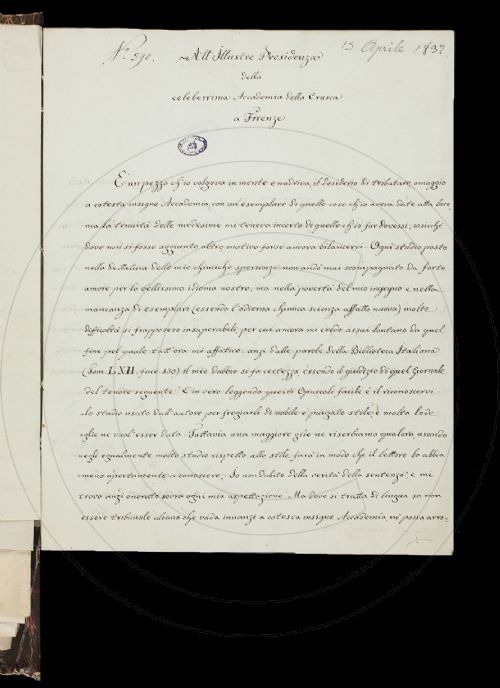 N.º 590.
15 Aprile 1832
All'Illustre Presidenza
della
celeberrima Accademia della Crusca
a Firenze
È un pezzo ch'io volgeva in mente e nudriva il desiderio di tributare omaggio
a cotesta insigne Accademia, con un esemplare di quelle cose ch'io aveva date alla luce
ma la tenuità delle medesime mi teneva incerto di quello ch'io far dovessi, cosicchè
dove non si fosse aggiunto altro motivo forse ancora bilancerei. Ogni studio posto
nella dettatura delle mie chimiche sperienze non andò mai scompagnato da forte
amore per lo bellissimo idioma nostro, ma nella povertà del mio ingegno e nella
mancanza di esemplari (essendo l'odierna chimica scienza affatto nuova) molte
difficoltà si frapposero insuperabili, per cui ancora mi credo assai lontano da quel
fine pel quale tutt'ora mi affatico: anzi dalle parole della Biblioteca Italiana
(Tom. LXII. facc. 130) il mio dubbio si fa certezza, essendo il giudizio di quel Giornale
del tenore seguente. E in vero leggendo questi Opuscoli facile è il riconoscervi
lo studio usato dall'autore per fregiarli di nobile e purgato stile; e molta lode
gliene vuol esser data. Tuttavia una maggiore gliene riserbiamo qualora, usando
egli egualmente molto studio rispetto allo stile, farà in modo che il lettore lo abbia
meno apertamente a conoscere. Io non dubito della verità della sentenza, e mi
trovo anzi onorato sovra ogni mia aspettazione. Ma dove si tratta di lingua so non
essere tribunale alcuno che vada innanzi a cotesta insigne Accademia, nè possa arro-